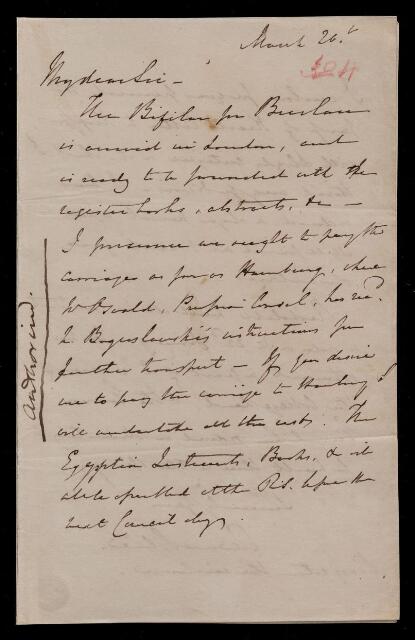 March 26.t
404
My dear Sir —
The Bifilar for Breslau
is arrived in London, and
is ready to be forwarded with the
register books, abstracts, &c —
I presume we ought to pay the
carriage as far as Hamburg, where
Mr Oswald, Prussian Consul, has recd.
M. Boguslawski's instructions for
further transport — If you desire
me to pay the carriage to Hamburg I
will undertake all the rest. The
Egyptian Instruments, Books, &
at the R.S. before the
next Council day.
Authorized.